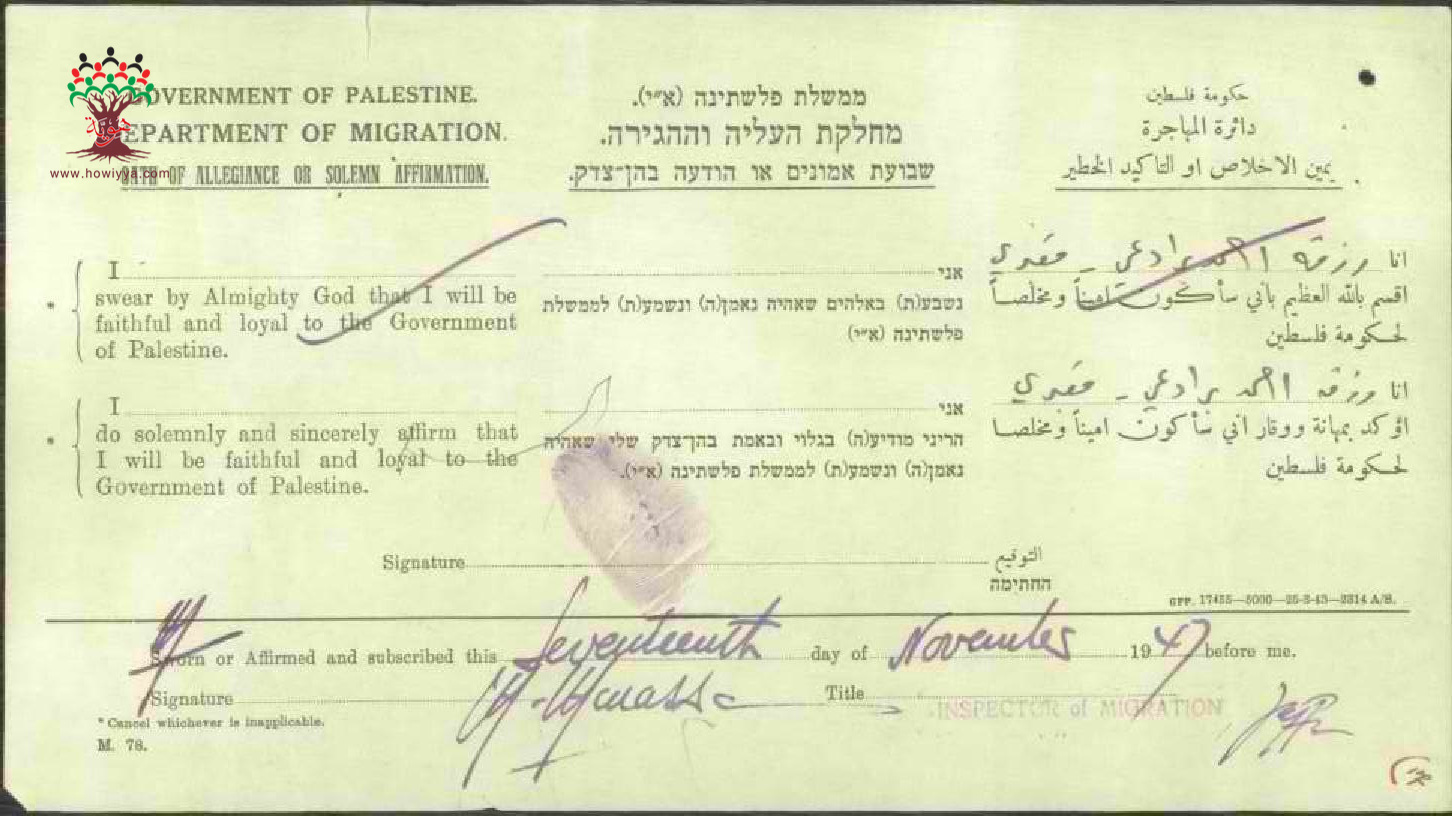 GOVERNMENT OF PALESTINE.
DEPARTMENT OF MIGRATION.
OATH OF ALLEGIANCE OR SOLEMN AFFIRMATION.
هوية
www.howiyya.com
ממשלת פלשתינה (א״י).
מחלקת העליה וההגירה.
שבועת אמונים או הודעה בהן־צדק.
حكومة فلسطين
دائرة المهاجرة
يمين الاخلاص او التاكيد الخطير
* I
swear by Almighty God that I will be
faithful and loyal to the Government
of Palestine.
אני
נשבע(ת) באלהים שאהיה נאמן(ה) ונשמע(ת) לממשלת
פלשתינה (א״י)
انا رزق احمد برادعي -
اقسم بالله العظيم بأني سأكون اميناً ومخلصاً
لحكومة فلسطين
* I
do solemnly and sincerely affirm that
I will be faithful and loyal to the
Government of Palestine.
אני
הריני מודיע(ה) בגלוי ובאמת בהן־צדק שלי שאהיה
נאמן(ה) ונשמע(ת) לממשלת פלשתינה (א״י).
انا رزق احمد برادعي -
اؤكد بمهانة ووقار اني سأكون اميناً ومخلصاً
لحكومة فلسطين
Signature
التوقيع
החתימה
GPP. 17455—5000—25-3-43—2314 A/B.
Sworn or Affirmed and subscribed this Seventeenth day of November 1947 before me.
Signature
Title INSPECTOR of MIGRATION
* Cancel whichever is inapplicable.
M. 78.